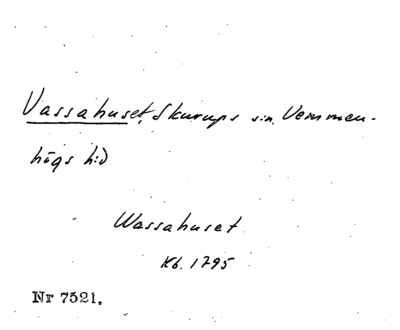 Vassahuset, Skurups sn. Vemmen-
högs hd
Wassahuset
Kb. 1795
Nr 7521.